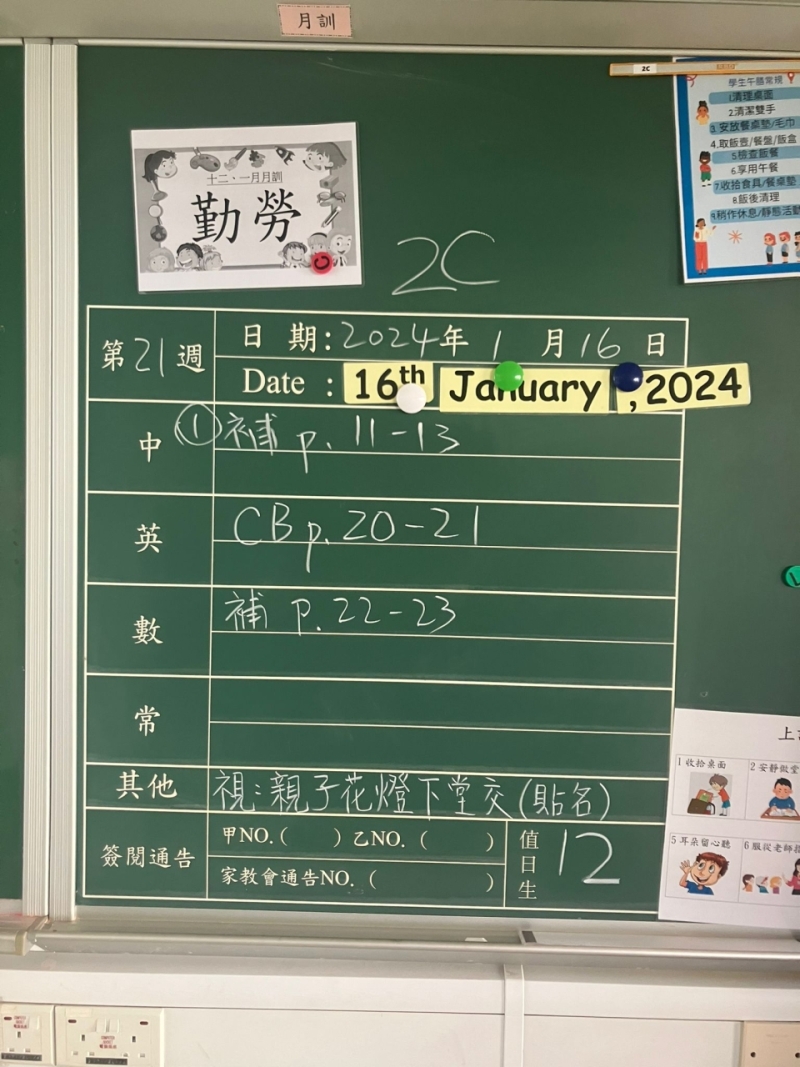 月訓
2C
十二、一月月訓
勤勞
2C
學生午膳常規
1清理桌面
2.清潔雙手
3.安放餐桌墊/毛巾
4.取飯壺/餐盤/飯盒
5檢查飯餐
6.享用午餐
7.收拾食具/餐桌墊
8飯後清理
9.稍作休息/靜態活動
第21週
日 期:2024年 1 月16日
Date : 16th January ,2024
中 ①補 p. 11-13
英 CB p. 20-21
數 補 P. 22-23
常
其他 視:親子花燈下堂交(貼名)
簽閱通告 甲NO.( ) 乙NO. ( )
家教會通告NO. ( )
值日生 12
1 收拾桌面
5 耳朵留心聽